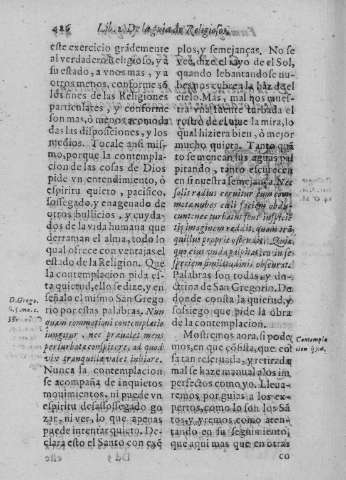 426 Lib. 2. De la guia de Religiosos
este exercicio grãdemente
al verdadero Religioso, y a
su estado, a vnos mas, y a
otros menos, conforme sõ
los fines de las Religiones
particulares, y conforme
son mas, ò menos acomoda
das las disposiciones, y los
medios. Tocale assi mis-
mo, porque la contempla-
cion de las cosas de Dios
pide vn entendimiento, ò
espiritu quieto, pacifico,
sossegado, y enagenado de
otros bullicios, y cuyda-
dos de la vida humana que
derraman el alma, todo lo
qual ofrece con ventajas el
estado de la Religion. Que
la contemplacion pida es-
ta quietud, ello se dize, y en
señalo el mismo San Grego
D. Grego.
rio por estas palabras. Nun
quam commotioni contemplatio
iungitur, nec præualet mens
perturbata conspicere, ad quod
vix tranquilla valet inhiare.
Nunca la contemplacion
se acompaña de inquietos
mouimientos, ni puede vn
espiritu desassossegado go
zar, ni ver, lo que apenas
puede intentar quieto. De-
clara esto el Santo con exẽ
plos, y semejanças. No se
vee, dize el rayo de el Sol,
quando lebantandose nu-
bes nos cubren la haz del
cielo. Mas, mal nos mues-
tra vna fuente turbada el
rostro de el que la mira, lo
qual hiziera bien, ò mejor
mucho quieta. Tanto quã
to se menean sus aguas pal
pitando, tanto escurecen
en si nuestra semejança. Nec
solis radius cernitur cum com-
motæ nubes cæli faciem obdu-
cunt: nec turbatus fons inspicien
tis imaginem reddit, quam trã
quillus proprie ostendit. Quia,
quo eius vnda palpitat, eo in se
speciem similitudinis obscurat.
Palabras son todas, y do-
ctrina de San Gregorio. De
donde consta la quietud, y
sossiego que pide la obra
de la contemplacion.
Mostremos aora, si pode
Contempla
mos, en que cõsista, que co
sa tan reseruada, y retirada
mal se haze manual a los im
perfectos como yo. Lleua-
remos, por guias a los ex-
pertos, como lo son los Sã
tos, y yremos como aten-
tando en su seguimiento,
que aqui mas que en otras
co